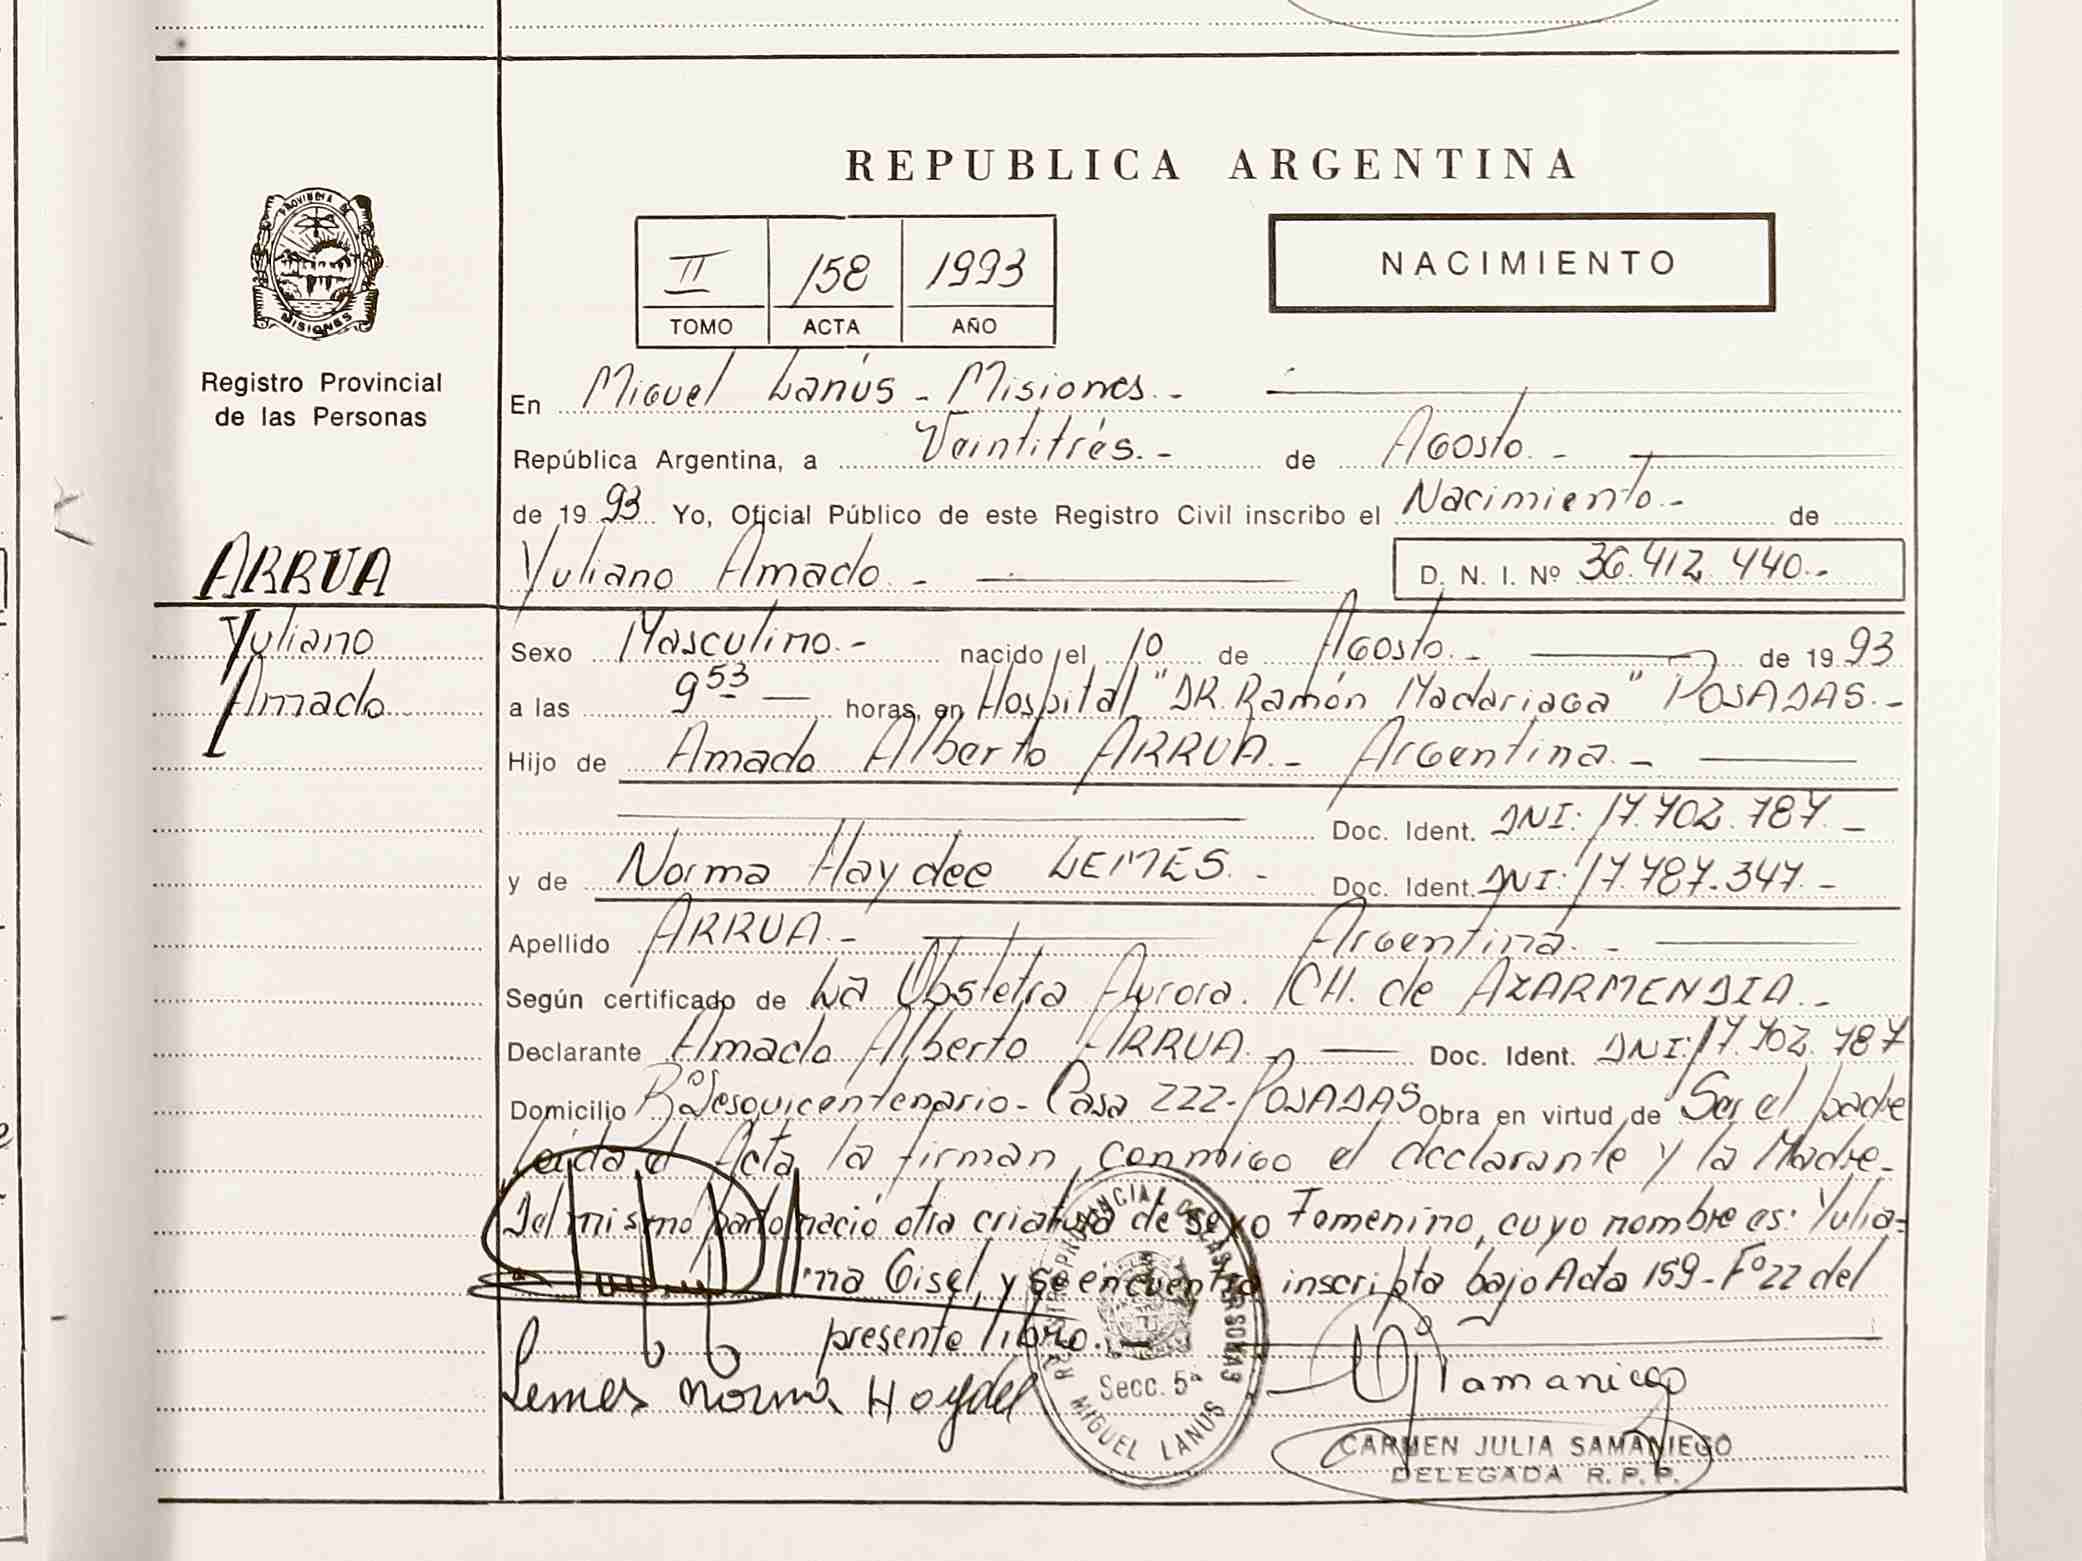 REPUBLICA ARGENTINA
PROVINCIA DE
MISIONES
Registro Provincial
de las Personas
II 158 1993
TOMO ACTA AÑO
NACIMIENTO
En Miguel Lanús - Misiones. -
República Argentina, a Veintitrés. - de Agosto. -
de 19 93 Yo, Oficial Público de este Registro Civil inscribo el Nacimiento. - de
ARRUA
Yuliano Amado. - D. N. I. Nº 36.412.440.-
Yuliano
Amado
Sexo Masculino. - nacido el 10 de Agosto. - de 19 93
a las 9 53 horas, en Hospital "DR. Ramón Madariaga" POSADAS. -
Hijo de Amado Alberto ARRUA. - Argentina. -
Doc. Ident. DNI: 17.702.787. -
y de Norma Haydee LEMES. - Doc. Ident. DNI: 17.787.347. -
Apellido ARRUA. - Argentina. -
Según certificado de La Obstetra Aurora. CH. de AZARMENDIA. -
Declarante Amado Alberto ARRUA. - Doc. Ident. DNI: 17.702.787
Domicilio Bº Sesquicentenario - Casa 222 - POSADAS Obra en virtud de Ser el padre
Leída el Acta, la firman, conmigo el declarante y la Madre. -
Del mismo parto nació otra criatura de sexo Femenino, cuyo nombre es: Yulia-
na Gisel, y se encuentra inscripta bajo Acta 159 - Fº 22 del
presente libro. -
Lemes Norma Haydee
REGISTRO PROVINCIAL DE LAS PERSONAS
Secc. 5ª
MIGUEL LANUS
Samaniego
CARMEN JULIA SAMANIEGO
DELEGADA R. P. P.